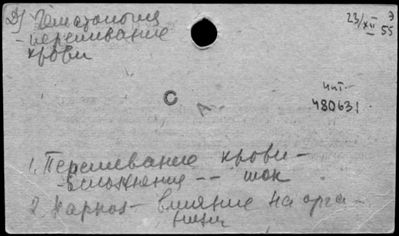 Д) Гематология
- переливание
крови
23/XII 55
Э
чит.
480631
С
А.
1. Переливание крови -
- осложнения -- шок
2. Наркоз - влияние на орга-
низм